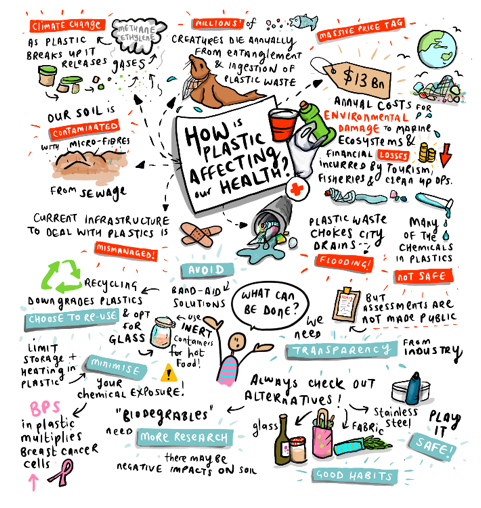 CLIMATE CHANGE
AS PLASTIC
BREAKS UP IT
RELEASES
GASES
METHANE
ETHYLENE
MILLIONS of
CREATURES DIE ANNUALLY
FROM ENTANGLEMENT
& INGESTION OF
PLASTIC WASTE
MASSIVE PRICE TAG
$13 Bn
ANNUAL COSTS FOR
ENVIRONMENTAL
DAMAGE TO MARINE
ECOSYSTEMS &
FINANCIAL LOSSES
INCURRED BY TOURISM,
FISHERIES & CLEAN UP OPS.
OUR SOIL IS
CONTAMINATED
WITH MICRO-FIBRES
FROM SEWAGE
HOW IS
PLASTIC
AFFECTING
our HEALTH?
CURRENT INFRASTRUCTURE
TO DEAL WITH PLASTICS IS
MISMANAGED!
PLASTIC WASTE
CHOKES CITY
DRAINS
FLOODING!
MANY
OF THE
CHEMICALS
IN PLASTICS
NOT SAFE
BUT
ASSESSMENTS ARE
NOT MADE PUBLIC
WE
NEED
TRANSPARENCY
FROM
INDUSTRY
AVOID
BAND-AID
SOLUTIONS
RECYCLING
DOWNGRADES PLASTICS
CHOOSE TO RE-USE & OPT
FOR
GLASS
USE
INERT
containers
for hot
food!
WHAT CAN
BE DONE?
LIMIT
STORAGE +
HEATING IN
PLASTIC
MINIMISE
YOUR
chemical EXPOSURE!
BPS
in plastic
multiplies
Breast cancer
cells
"BIODEGRABLES"
need MORE RESEARCH
there may be
NEGATIVE IMPACTS ON SOIL
ALWAYS CHECK OUT
ALTERNATIVES!
glass
FABRIC
Stainless
STEEL
GOOD HABITS
PLAY
IT
SAFE!